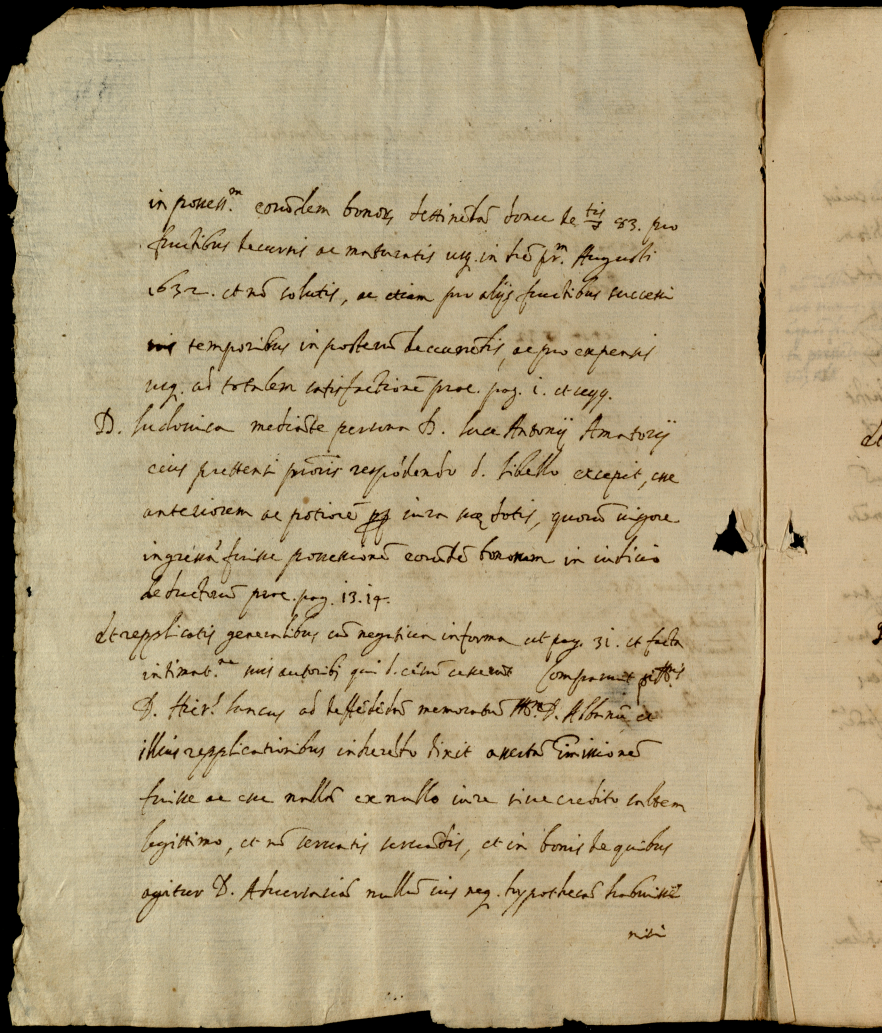 in possess.m eorūdem bonorȝ destinēdā donec de 83. pro
fructibus decursis ac maturatis usq. in diē pr.m Augusti
1632. et nō solutis, ac etiam pro alijs fructibus successi
vis temporibus in posterū decurrēdis, ac pro expensis
usq. ad totalem satisfactionē proc. pag. 1. et seqq.
D. Ludovica mediāte persona D. Luce Antonij Amatorij
eius prettensi respōdendo d. libello excepit, esse
anteriorem ac potiorē iura suę dotis, quorū vigore
ingressā fuisse possessionē eorūdē bonorum in iudicio
deductorū proc. pag. 13. 14.
Et repplicatis generalibus cū negativa in forma ut pag. 31. et facta
intimat.ne suis autoribȝ qui d. cesserunt Comparuit
D. Hier. Lancus ad deffēdēdā memoratum D. Albanū et
illius repplicationibus inherēdo dixit assertā īmissionē
fuisse ac esse nullā ex nullo iure sive credito saltem
legittimo, et nō servatis servādis, et in bonis de quibus
agitur D. Adversariā nullū ius neq. hyppothecā habuisse
nisi